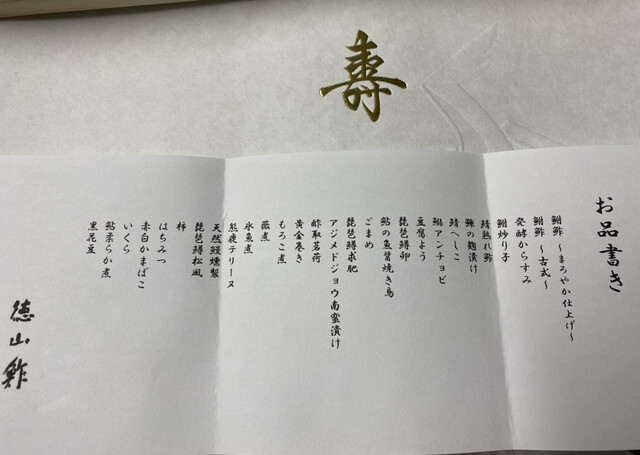 寿
お品書き
鮒鮓 ～まろやか仕上げ～
鮒鮓 ～古式～
発酵からすみ
鮒炒り子
鯖熟れ鮓
鯖へしこ
鰊の麹漬け
鰯アンチョビ
豆腐よう
琵琶鱒卵
鮎の魚醤焼き鳥
ごまめ
琵琶鱒求肥
アジメドジョウ南蛮漬け
酢取茗荷
黄金巻き
もろこ煮
薇煮
氷魚煮
熊鹿テリーヌ
天然鰻燻製
琵琶鱒松風
柿
はちみつ
赤白かまぼこ
いくら
鮎柔らか煮
黒花豆
徳山鮓